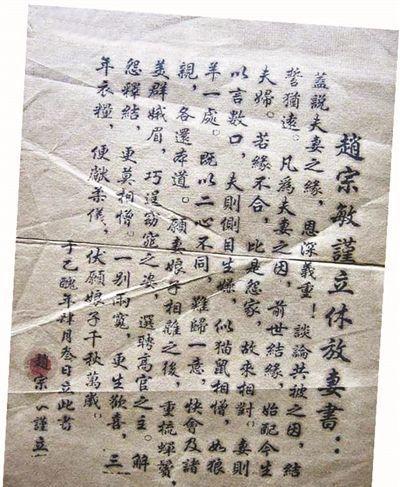 趙宗敏謹立休放妻書：
蓋說夫妻之緣，恩深義重！談論共被之因，結
誓猶遠。凡為夫妻之因，前世結緣，始配今生
夫婦。若緣不合，比是怨家，故來相對。妻則
以言數口，夫則側目生嫌，似猫鼠相憎，如狼
羊一處。既以二心不同，難歸一意，快會及諸
親，各還本道。願妻娘子相離之後，重梳蟬鬢，
美群娥眉，巧逞窈窕之姿，選聘高官之主。解
怨釋結，更莫相憎。一別兩寬，更生歡喜，三
年衣糧，便獻柔儀，伏願娘子千秋萬歲。
于乙醜年肆月叁日立此書
趙宗謹立